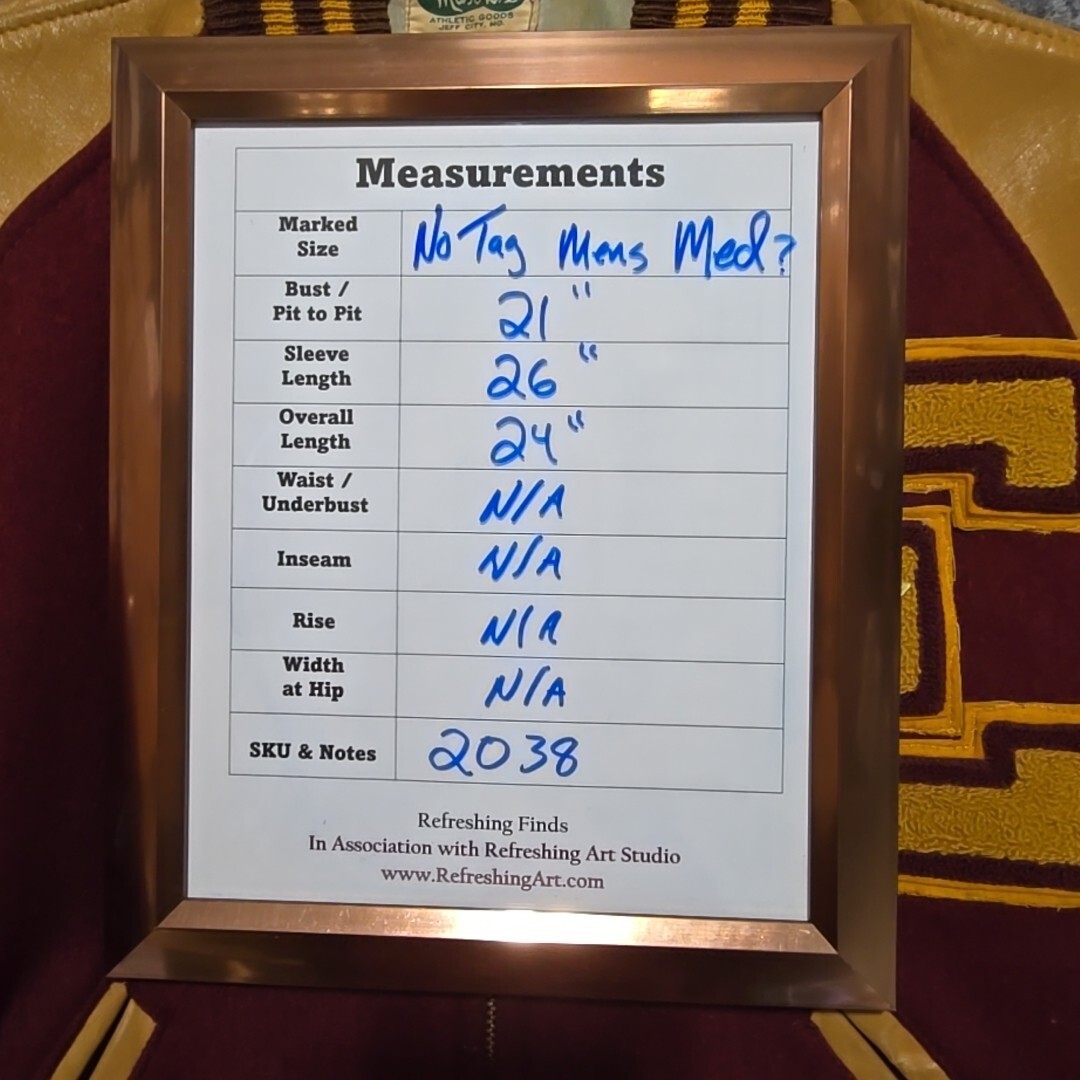 ATHLETIC GOODS
JEFF CITY, MO.
Measurements
Marked
Size
No Tag Mens Med?
Bust /
Pit to Pit
21"
Sleeve
Length
26"
Overall
Length
24"
Waist /
Underbust
N/A
Inseam
N/A
Rise
N/A
Width
at Hip
N/A
SKU & Notes
2038
Refreshing Finds
In Association with Refreshing Art Studio
www.RefreshingArt.com